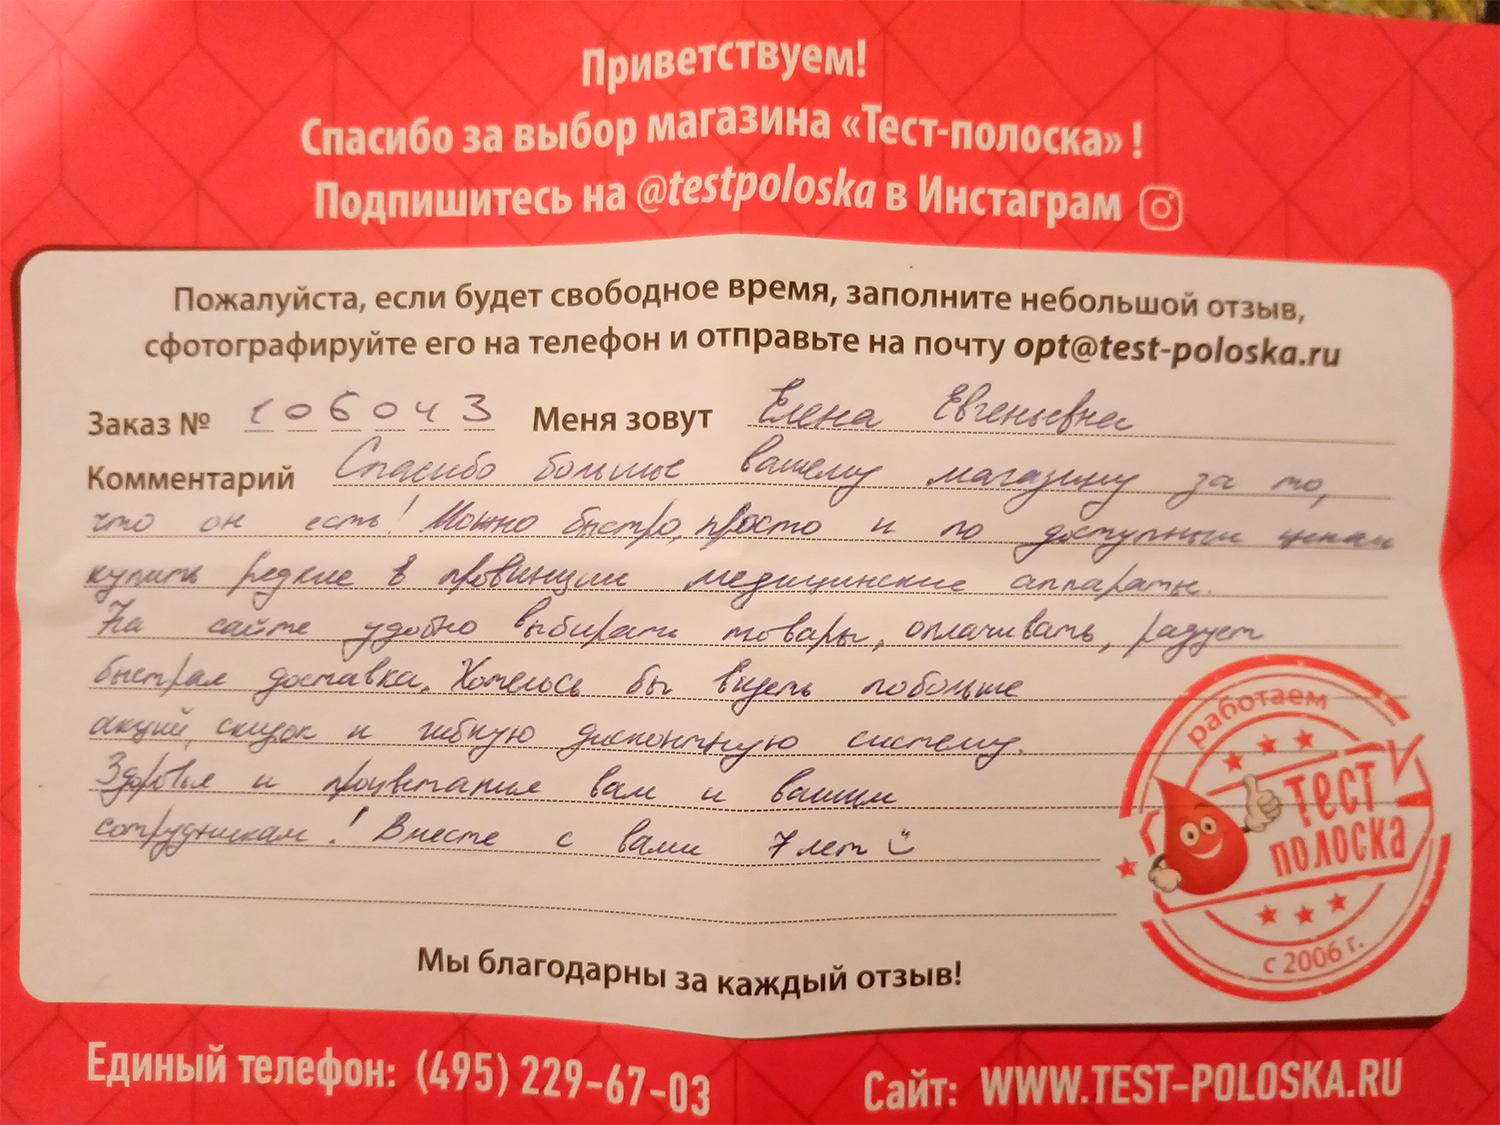 Приветствуем!
Спасибо за выбор магазина «Тест-полоска» !
Подпишитесь на @testpoloska в Инстаграм
Пожалуйста, если будет свободное время, заполните небольшой отзыв,
сфотографируйте его на телефон и отправьте на почту opt@test-poloska.ru
Заказ № 106043 Меня зовут Елена Евгеньевна
Комментарий Спасибо большое вашему магазину за то,
что он есть! Можно быстро, просто и по доступным ценам
купить редкие в провинции медицинские аппараты.
На сайте удобно выбирать товары, оплачивать, радует
быстрая доставка. Хотелось бы видеть побольше
акций, скидок и гибкую дисконтную систему.
Здоровья и процветания вам и вашим
сотрудникам! Вместе с вами 7 лет
работаем
ТЕСТ
ПОЛОСКА
с 2006 г.
Мы благодарны за каждый отзыв!
Единый телефон: (495) 229-67-03 Сайт: WWW.TEST-POLOSKA.RU